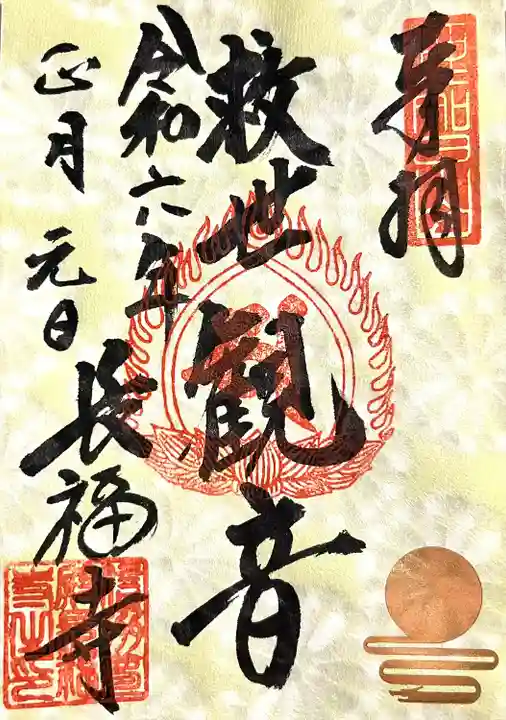 奉拝
救世觀音
令和六年
正月元日
長福寺